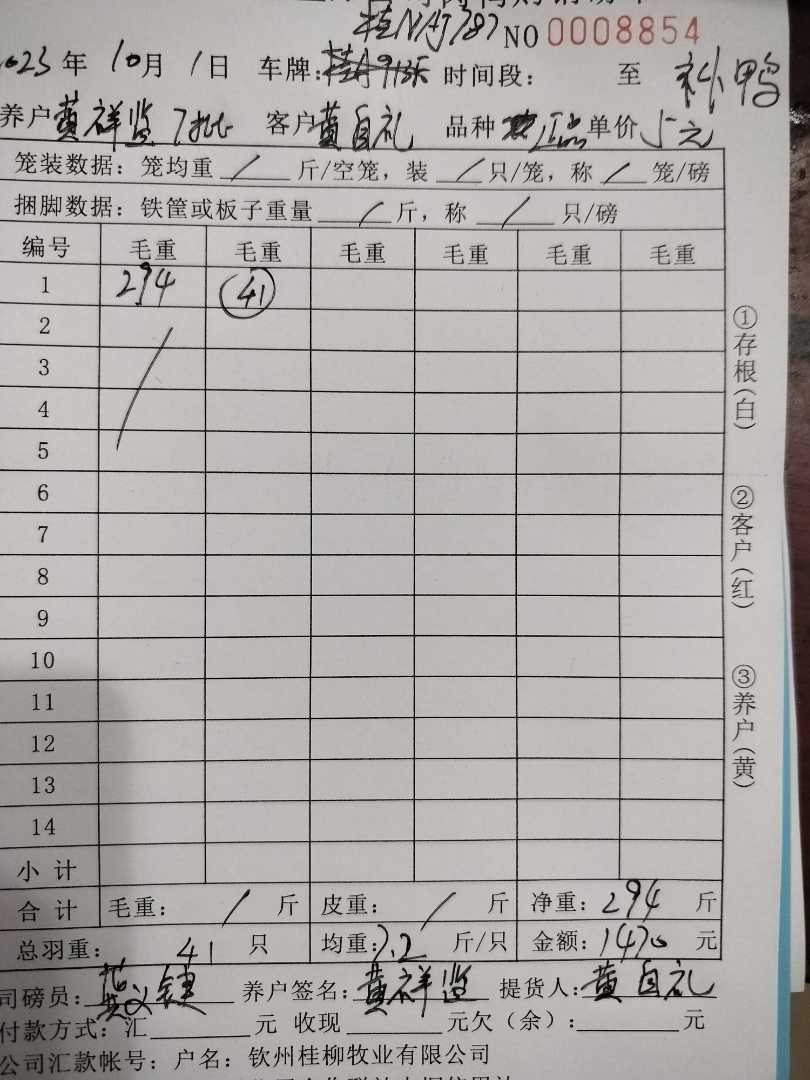 桂NAJ787 NO 0008854
2023年 10月 1日 车牌: 时间段: 至 补鸭
养户 黄祥监 7批 客户 黄自礼 品种 正品 单价 5元
笼装数据: 笼均重 / 斤/空笼, 装 / 只/笼, 称 / 笼/磅
捆脚数据: 铁筐或板子重量 / 斤, 称 / 只/磅
编号 毛重 毛重 毛重 毛重 毛重 毛重
1 294 41
2
3
4
5
6
7
8
9
10
11
12
13
14
小计
合计 毛重: / 斤 皮重: / 斤 净重: 294 斤
总羽重: 41 只 均重: 7.2 斤/只 金额: 1470 元
司磅员: 养户签名: 黄祥监 提货人: 黄自礼
付款方式: 汇 元 收现 元欠(余): 元
公司汇款帐号: 户名: 钦州桂柳牧业有限公司
①存根(白)
②客户(红)
③养户(黄)